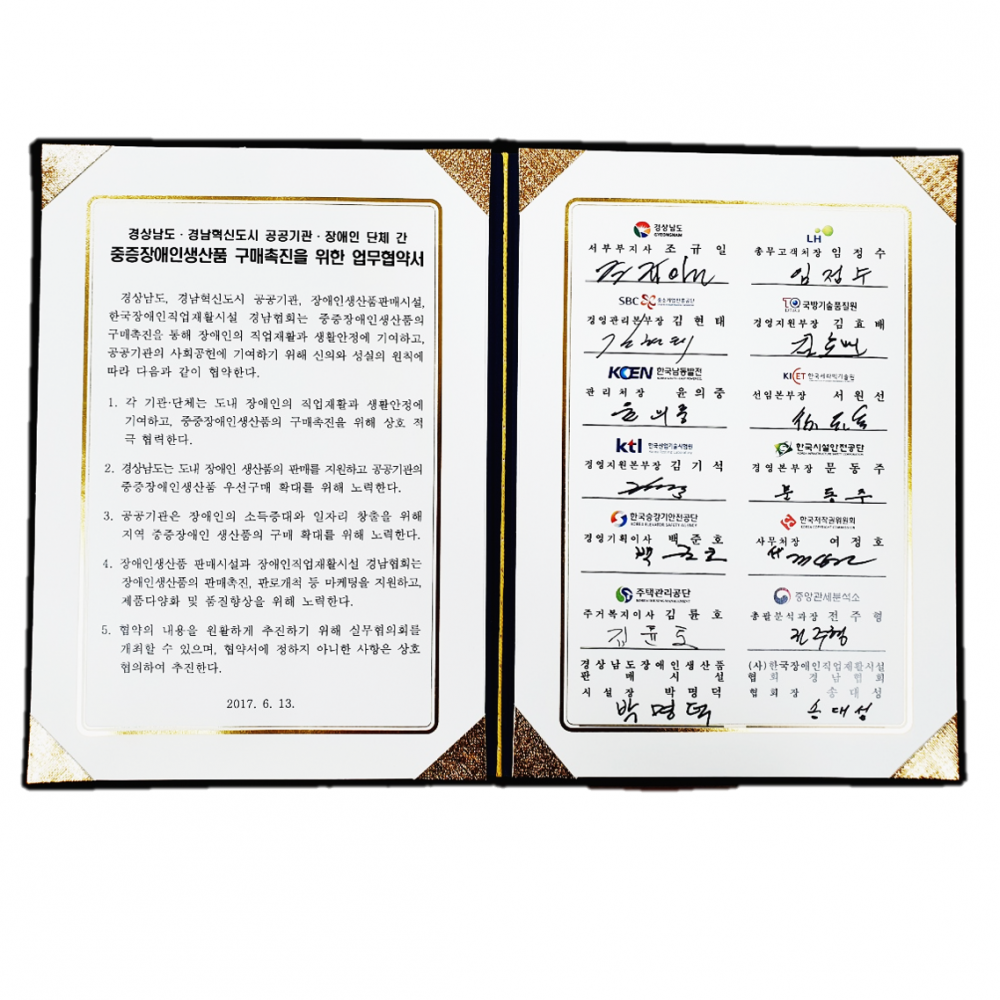 경상남도 · 경남혁신도시 공공기관 · 장애인 단체 간
중증장애인생산품 구매촉진을 위한 업무협약서
경상남도, 경남혁신도시 공공기관, 장애인생산품판매시설,
한국장애인직업재활시설 경남협회는 중증장애인생산품의
구매촉진을 통해 장애인의 직업재활과 생활안정에 기여하고,
공공기관의 사회공헌에 기여하기 위해 신의와 성실의 원칙에
따라 다음과 같이 협약한다.
1. 각 기관·단체는 도내 장애인의 직업재활과 생활안정에
기여하고, 중증장애인생산품의 구매촉진을 위해 상호 적
극 협력한다.
2. 경상남도는 도내 장애인 생산품의 판매를 지원하고 공공기관의
중증장애인생산품 우선구매 확대를 위해 노력한다.
3. 공공기관은 장애인의 소득증대와 일자리 창출을 위해
지역 중증장애인 생산품의 구매 확대를 위해 노력한다.
4. 장애인생산품 판매시설과 장애인직업재활시설 경남협회는
장애인생산품의 판매촉진, 판로개척 등 마케팅을 지원하고,
제품다양화 및 품질향상을 위해 노력한다.
5. 협약의 내용을 원활하게 추진하기 위해 실무협의회를
개최할 수 있으며, 협약서에 정하지 아니한 사항은 상호
협의하여 추진한다.
2017. 6. 13.
경상남도
GYEONGNAM
서부부지사 조규일
LH
총무고객처장 임정수
임정수
SBC 중소기업진흥공단
경영관리본부장 김현태
김현태
국방기술품질원
경영지원부장 김효배
김효배
KOEN 한국남동발전
관리처장 윤의중
윤의중
KICET 한국세라믹기술원
선임본부장 서원선
ktl 한국산업기술시험원
경영지원본부장 김기석
한국시설안전공단
경영본부장 문동주
문동주
한국승강기안전공단
KOREA ELEVATOR SAFETY AGENCY
경영기획이사 백준호
백준호
한국저작권위원회
KOREA COPYRIGHT COMMISSION
사무처장 여정호
주택관리공단
주거복지이사 김윤호
김윤호
중앙관세분석소
총괄분석과장 전주형
전주형
경상남도장애인생산품
판매시설
시설장 박명덕
박명덕
(사)한국장애인직업재활시설
협회 경남협회
협회장 송대성
송대성